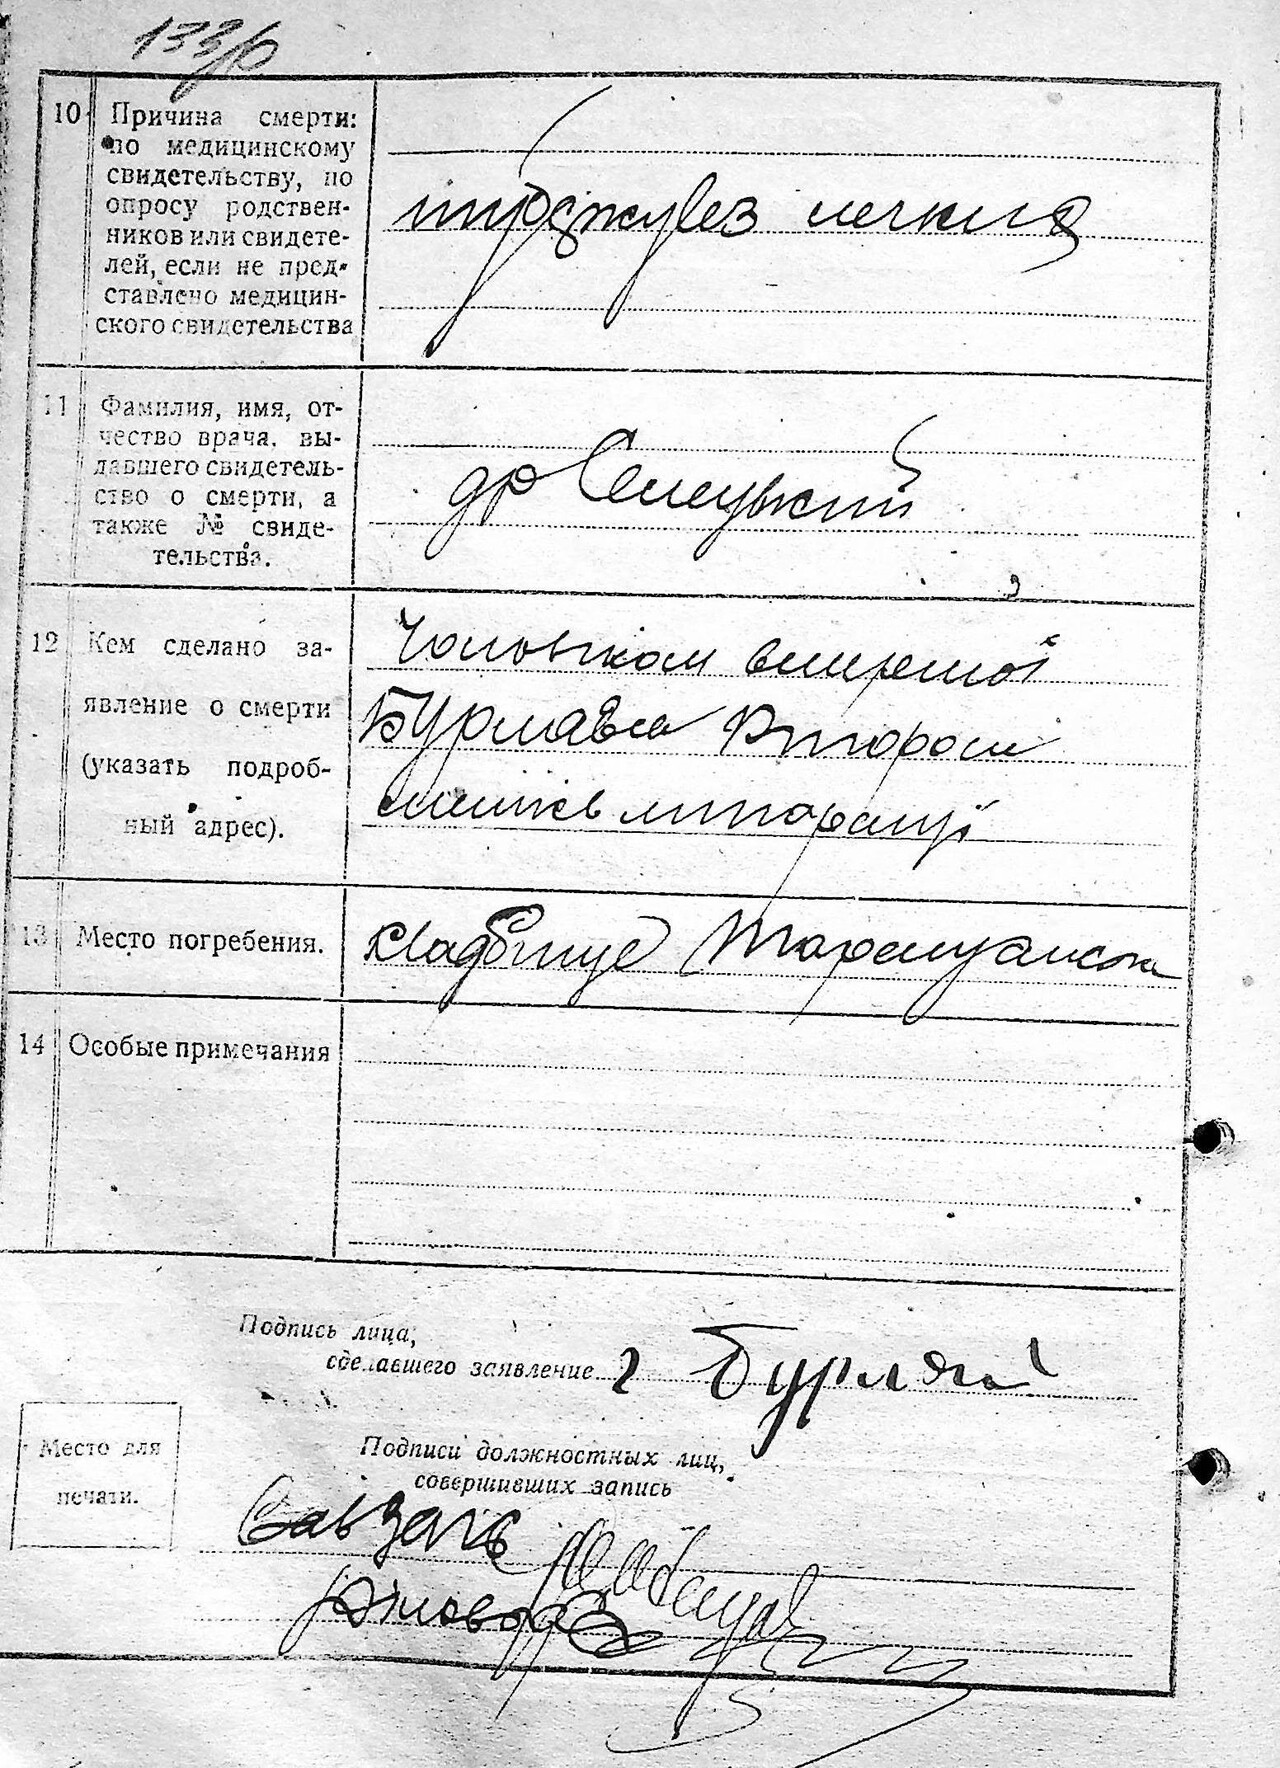 133/б
10 Причина смерти:
по медицинскому
свидетельству, по
опросу родствен-
ников или свидете-
лей, если не пред-
ставлено медицин-
ского свидетельства
туберкулез легких
11 Фамилия, имя, от-
чество врача, вы-
давшего свидетель-
ство о смерти, а
также № свиде-
тельства.
др
12 Кем сделано за-
явление о смерти
(указать подроб-
ный адрес).
Чоловіком вмершої
13 Место погребения.
кладбище
14 Особые примечания
Подпись лица,
сделавшего заявление
Бурлай
Место для
печати.
Подписи должностных лиц,
совершивших запись
Зав Загс